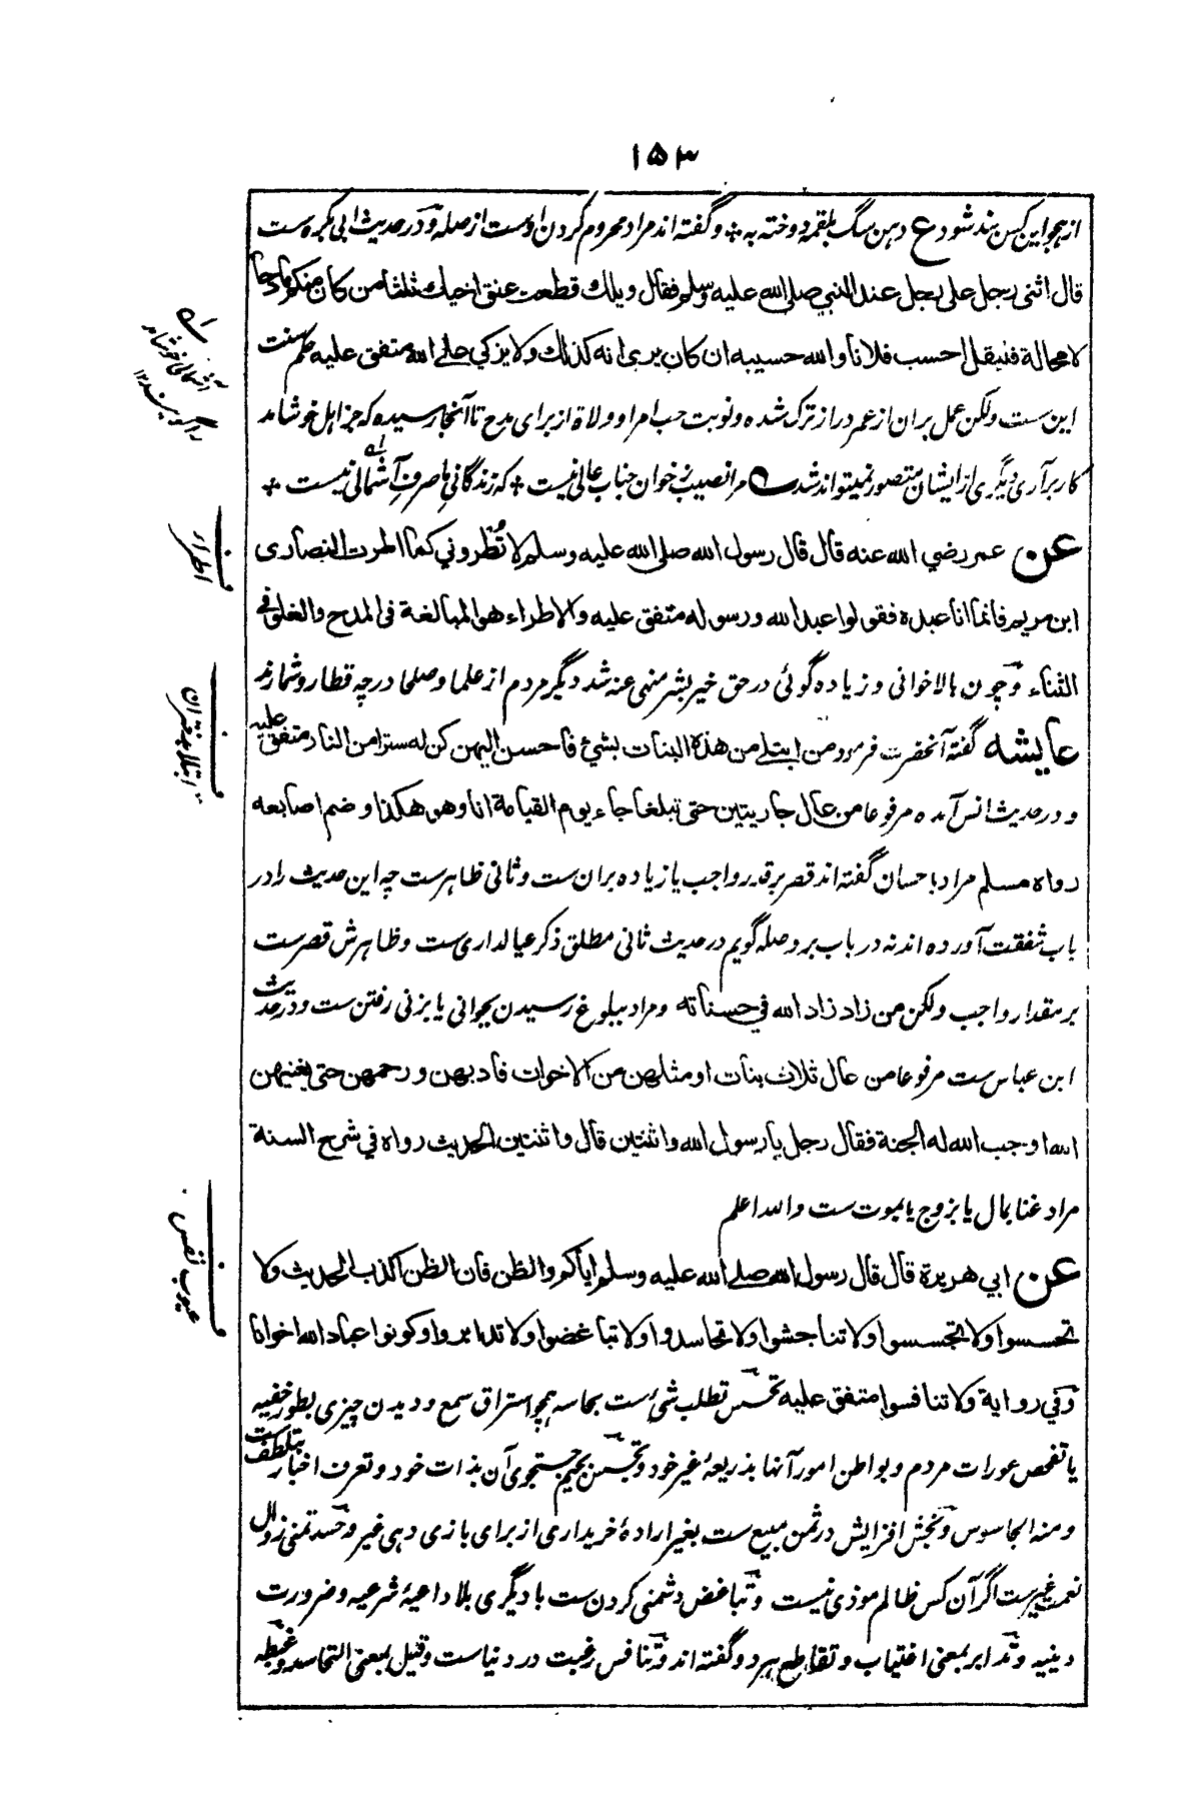 ۱۵۳
از ہجو این کس بند شود ع دہن سگ بلقمہ دوختہ بہ ÷ و گفتہ اند مراد محروم کردن اوست از صلہ و در حدیث ابی بکرہ ست
قال اثنی رجل علی رجل عند النبي صلی الله علیه وسلم فقال ویلك قطعت عنق اخیك ثلثا من كان منكم مادحا
لا محالة فلیقل احسب فلانا والله حسیبه ان كان یری انه كذلك ولا یزكي علی الله متفق علیه حکم سنت
این ست ولکن عمل بران از عمر دراز ترک شدہ و نوبت حب امرا و ولاة از برای مدح تا آنجا رسیدہ کہ جز اہل خوشامد
کار برآری دیگری از ایشان متصور نمیتواند شد مرا نصیب ز خوان جناب عالی نیست ÷ کہ زندگانی ما صرف آشمالی نیست ÷
عن عمر رضي الله عنه قال قال رسول الله صلی الله علیه وسلم لا تُطروني كما اطرت النصاری
ابن مریم فانما انا عبده فقولوا عبد الله ورسوله متفق علیه والاطراء هو المبالغة فی المدح والغلو في
الثناء و چون بالاخوانی و زیادہ گوئی در حق خیر بشر منہی عنہ شد دیگر مردم از علما و صلحا در چہ قطار و شمار اند
عایشه گفتہ آنحضرت فرمود من ابتلی من هذه البنات بشيء فاحسن الیهن كن له سترا من النار متفق علیه
و در حدیث انس آمدہ مرفوعا من عال جاریتین حتی تبلغا جاء یوم القیامة انا وهو هكذا وضم اصابعه
رواه مسلم مراد باحسان گفتہ اند قصر بر قدر واجب یا زیادہ بران ست و ثانی ظاہر ست چہ این حدیث را در
باب شفقت آوردہ اند نہ در باب بر و صلہ گویم در حدیث ثانی مطلق ذکر عیالداری ست و ظاہرش قصر ست
بر مقدار واجب ولکن من زاد زاد الله في حسناته و مراد ببلوغ رسیدن بجوانی یا بزنی رفتن ست و در حدیث
ابن عباس ست مرفوعا من عال ثلاث بنات او مثلهن من الاخوات فادبهن ورحمهن حتی یغنیهن
الله اوجب الله له الجنة فقال رجل یا رسول الله واثنتین قال واثنتین الحدیث رواه في شرح السنة
مراد غنا بمال یا بزوج یا بموت ست والله اعلم
عن ابي هریرة قال قال رسول الله صلی الله علیه وسلم ایاكم والظن فان الظن اكذب الحدیث ولا
تحسسوا ولا تجسسوا ولا تناجشوا ولا تحاسدوا ولا تباغضوا ولا تدابروا وكونوا عباد الله اخوانا
وفي روایة ولا تنافسوا متفق علیه تحسس تطلب شئ ست بحاسہ ہمچو استراق سمع و دیدن چیزی بطور خفیہ
یا تفحص عورات مردم و بواطن امور آنہا بذریعۂ غیر خود و تجسس بجیم جستجوی آن بذات خود و تعرف اخبار بتلطف ست
و منہ الجاسوس و نجش افزایش در ثمن مبیع ست بغیر ارادۂ خریداری از برای بازی دہی غیر و حسد تمنی زوال
نعمت غیر ست اگر آن کس ظالم موذی نیست و تباغض دشمنی کردن ست با دیگری بلا داعیۂ شرعیہ و ضرورت
دینیہ و تدابر بمعنی اغتیاب و تقاطع ہر دو گفتہ اند و تنافس رغبت در دنیاست و قیل بمعنی التحاسد و غبطہ
آشمالی خوشامد
را گویند ۱۲
ف اطراء
ف ابتلا بدختران
ف عیوب نفس